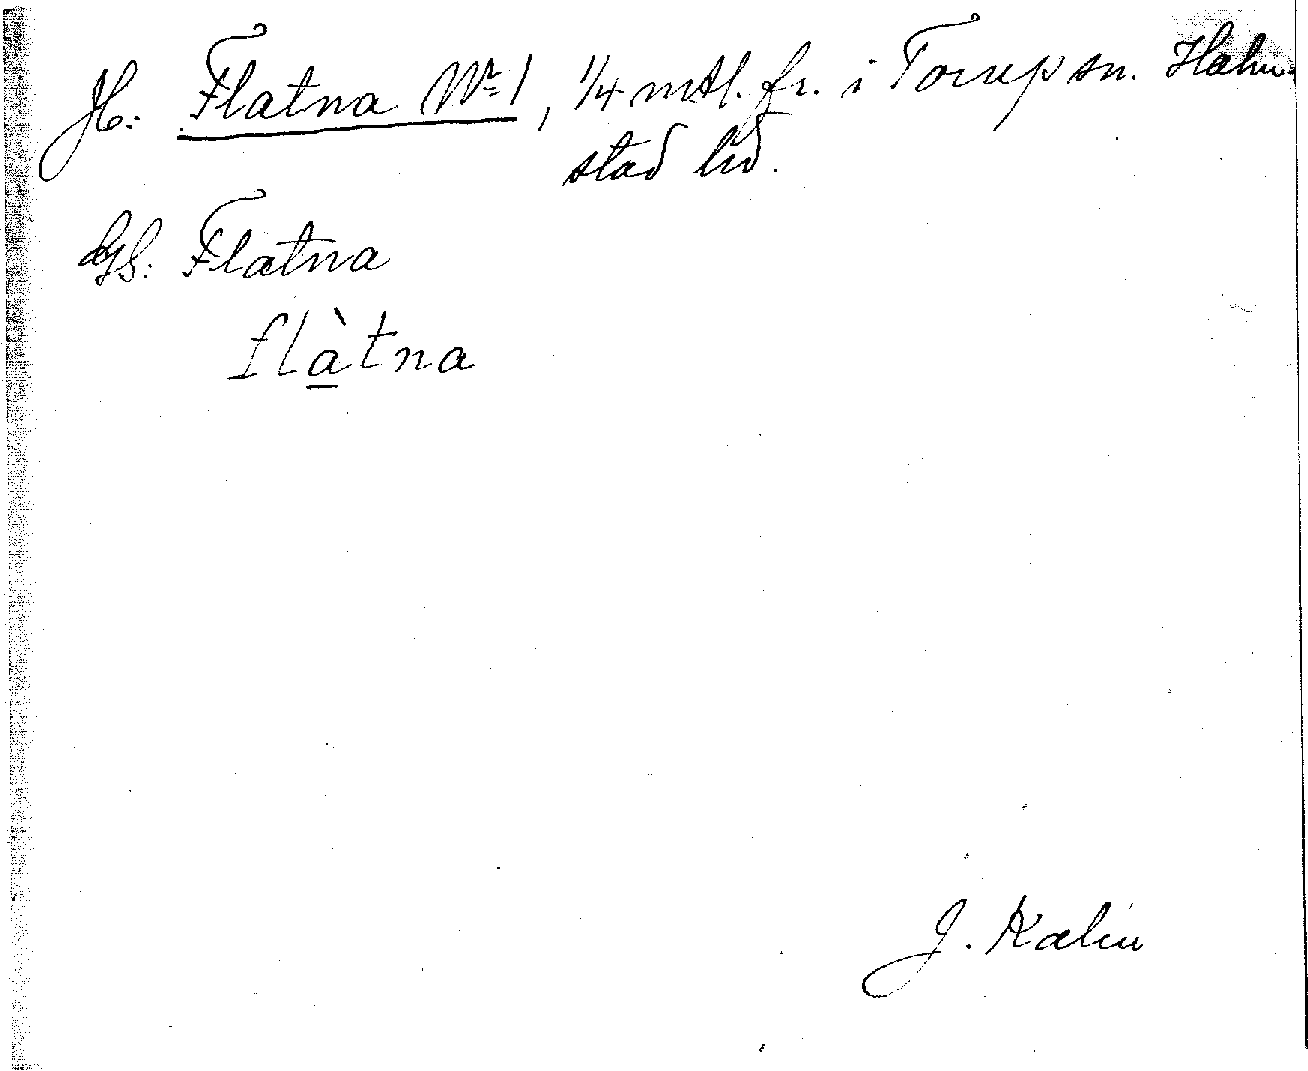 H: Flatna Nr 1, 1/4 mtl. fr. i Torrup sn. Halm-
stad hd.
dGS: Flatna
flàtna
J. Kalén